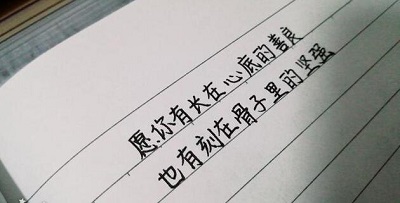 愿你有长在心底的善良
也有刻在骨子里的坚强